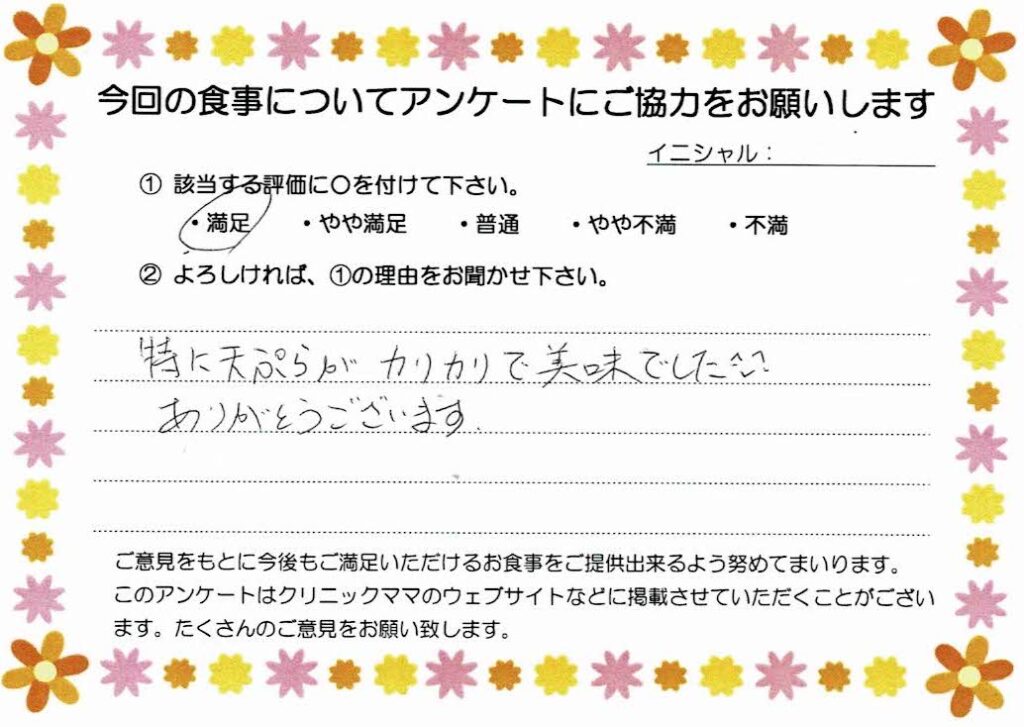 今回の食事についてアンケートにご協力をお願いします
イニシャル：
① 該当する評価に〇を付けて下さい。
・満足 ・やや満足 ・普通 ・やや不満 ・不満
② よろしければ、①の理由をお聞かせ下さい。
特に天ぷらが カリカリで美味でした^^
ありがとうございます.
ご意見をもとに今後もご満足いただけるお食事をご提供出来るよう努めてまいります。
このアンケートはクリニックママのウェブサイトなどに掲載させていただくことがござい
ます。たくさんのご意見をお願い致します。